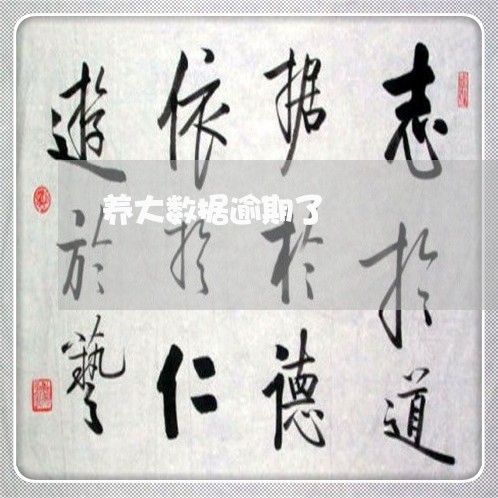 志於道
据於德
依於仁
遊於藝
养大数据逾期了